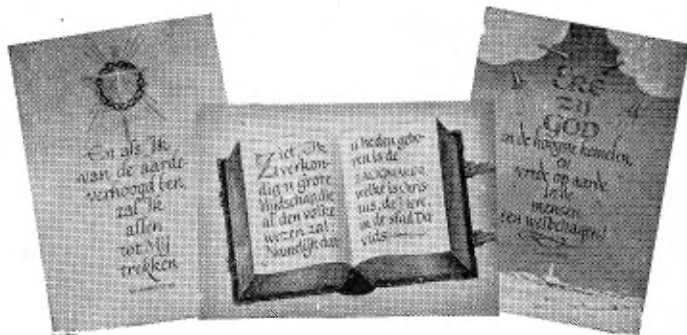 En als Ik
van de aarde
verhoogd ben,
zal Ik
allen
tot Mij
trekken
Ziet, Ik
verkon-
dig u grote
blijdschap, die
al den volke
wezen zal:
Namelijk dat
u heden gebo-
ren is de
ZALIGMAKER
welke is Chris-
tus, de Heer,
in de stad Da-
vids.
ERE
ZIJ
GOD
in de hoogste hemelen,
en
vrede op aarde,
in de
mensen
een welbehagen!